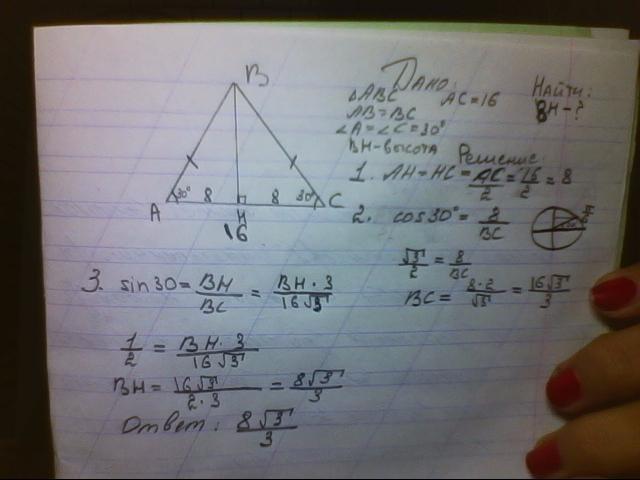 B
30° 8 8 30°
A H C
16
Дано:
△ABC AC=16
AB=BC
∠A=∠C=30°
BH-высота
Найти:
BH-?
Решение:
1. AH=HC=AC/2=16/2=8
2. cos30°=8/BC
√3/2=8/BC
BC=8·2/√3=16√3/3
3. sin30=BH/BC=BH·3/16√3
1/2=BH·3/16√3
BH=16√3/2·3=8√3/3
Ответ: 8√3/3